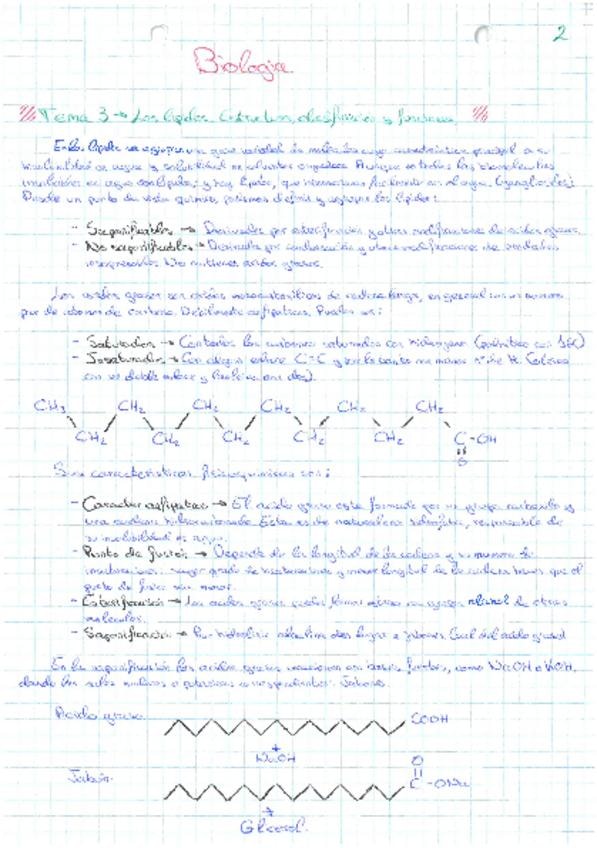 2
Biología
Tema 3 → Los lípidos. Estructura, clasificación y funciones.
En los lípidos se agrupan una gran variedad de moléculas cuya característica principal es su
insolubilidad en agua y solubilidad en solventes orgánicos. Aunque no todas las biomoléculas
insolubles en agua son lípidos y hay lípidos, que interaccionan fácilmente con el agua (gangliósidos).
Desde un punto de vista químico, podemos definir y agrupar los lípidos:
- Saponificables → Derivados por esterificación y otras modificaciones de ácidos grasos.
- No saponificables → Derivados por condensación y otras modificaciones de unidades
isoprenoides. No contienen ácidos grasos.
Los ácidos grasos son ácidos monocarboxílicos de cadena larga, en general con un número
par de átomos de carbono. Débilmente anfipáticos. Pueden ser:
- Saturados → Con todos los carbonos saturados con hidrógeno (palmítico con 16C)
- Insaturados → Con algún enlace C=C y por lo tanto un menor nº de H. (oleico
con un doble enlace y linoleico con dos).
CH₃ CH₂ CH₂ CH₂ CH₂ CH₂
CH₂ CH₂ CH₂ CH₂ CH₂ C-OH
O
Sus características fisicoquímicas son:
- Carácter anfipático → El ácido graso está formado por un grupo carboxilo y
una cadena hidrocarbonada. Esta es de naturaleza hidrófoba, responsable de
su insolubilidad en agua.
- Punto de fusión → Depende de la longitud de la cadena y su número de
insaturaciones: mayor grado de insaturaciones y menor longitud de la cadena hacen que el
punto de fusión sea menor.
- Esterificación → Los ácidos grasos pueden formar ésteres con grupos alcohol de otras
moléculas.
- Saponificación → Por hidrólisis alcalina dan lugar a jabones. (sal del ácido graso)
En la saponificación los ácidos grasos reaccionan con bases fuertes, como NaOH o KOH,
dando las sales sódicas o potásicas correspondientes: Jabones.
Ácido graso COOH
+
NaOH
O
Jabón C-ONa
+
Glicerol.